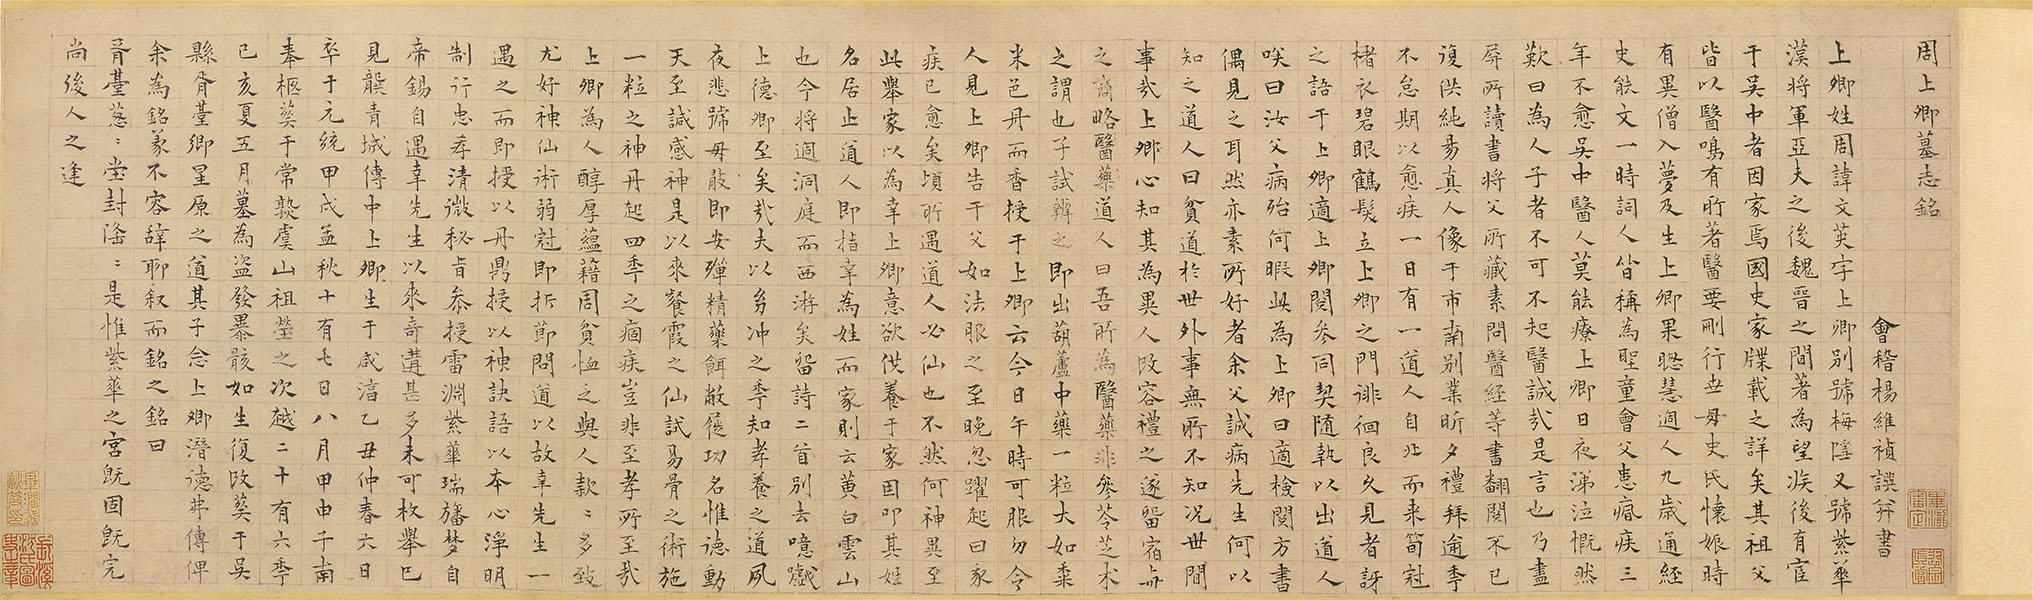 周上卿墓志銘
會稽楊維禎譔并書
上卿姓周諱文英字上卿別號梅隱又號紫華
漢將軍亞夫之後魏晉之間著為望族後有宦
于吳中者因家焉國史家牒載之詳矣其祖父
皆以醫鳴有所著醫要刪行世母史氏懷娠時
有異僧入夢及生上卿果聰慧過人九歲通經
史能文一時詞人皆稱為聖童會父患癎疾三
年不愈吳中醫人莫能療上卿日夜涕泣慨然
歎曰為人子者不可不知醫誠哉是言也乃盡
屏所讀書將父所藏素問醫經等書翻閱不已
復供純昜真人像于市南別業昕夕禮拜逾季
不怠期以愈疾一日有一道人自北而来筍冠
楮衣碧眼鶴髮立上卿之門徘徊良久見者訝
之語于上卿適上卿閱參同契隨執以出道人
咲曰汝父病殆何暇此為上卿曰適檢閱方書
偶見之耳然亦素所好者余父誠病先生何以
知之道人曰貧道於世外事無所不知况世間
事哉上卿心知其為異人改容禮之遂畱宿與
之商略醫藥道人曰吾所為醫藥非參苓芝术
之謂也子試辨之即出葫蘆中藥一粒大如黍
米色丹而香授于上卿云今日午時可服勿令
人見上卿告于父如法服之至晚忽躍起曰家
疾已愈矣頃所遇道人必仙也不然何神異至
此舉家以為幸上卿意欲供養于家因叩其姓
名居止道人即指幸為姓而家則云黄白雲山
也今將適洞庭而西游矣畱詩二首別去噫戲
上德卿至矣哉夫以多冲之季知孝養之道夙
夜悲號毋敢即安殫精藥餌敝屣功名惟德動
天至誠感神是以來餐霞之仙試昜骨之術施
一粒之神丹起四季之痼疾豈非至孝所至哉
上卿為人醇厚蘊藉周貧恤乏與人款〻多致
尤好神仙術弱冠即折節問道以故幸先生一
遇之而即授以丹鼎授以袂訣語以本心淨明
制行忠孝清微秘旨叅授雷淵紫華瑞旛夢自
帝錫自遇幸先生以來奇遘甚多未可枚舉已
見龔青城傳中上卿生于咸淳乙丑仲春六日
卒于元統甲戌孟秋十有七日八月甲申子南
奉柩葬于常熟虞山祖塋之次越二十有六季
己亥夏五月墓為盗發暴骸如生復改葬于吳
縣胥臺鄉星原之道其子念上卿潛德弗傳俾
余為銘義不容辞聊叙而銘之銘曰
胥臺蔥〻堂封隆〻是惟紫華之宮既固既完
尚後人之逢